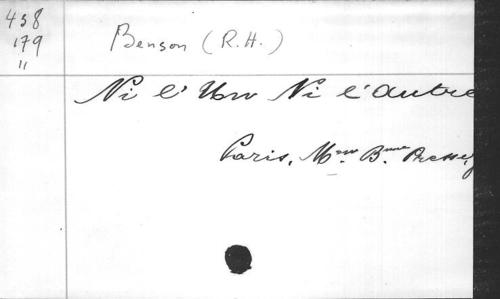 458
179
"
Benson (R.H.)
Ni l'Un Ni l'Autre
Paris, Mson Bnne Presse,